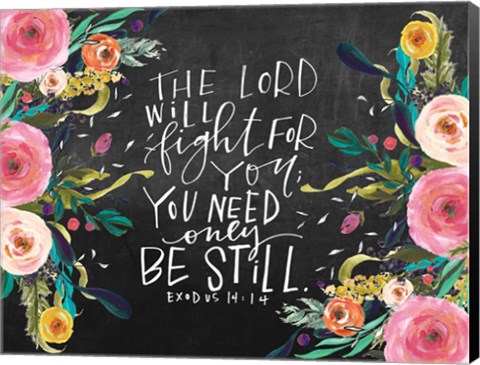 THE LORD
WiLL
fight FOR
YOU;
YOU NEED
only
BE STiLL.
EXODUS 14:14